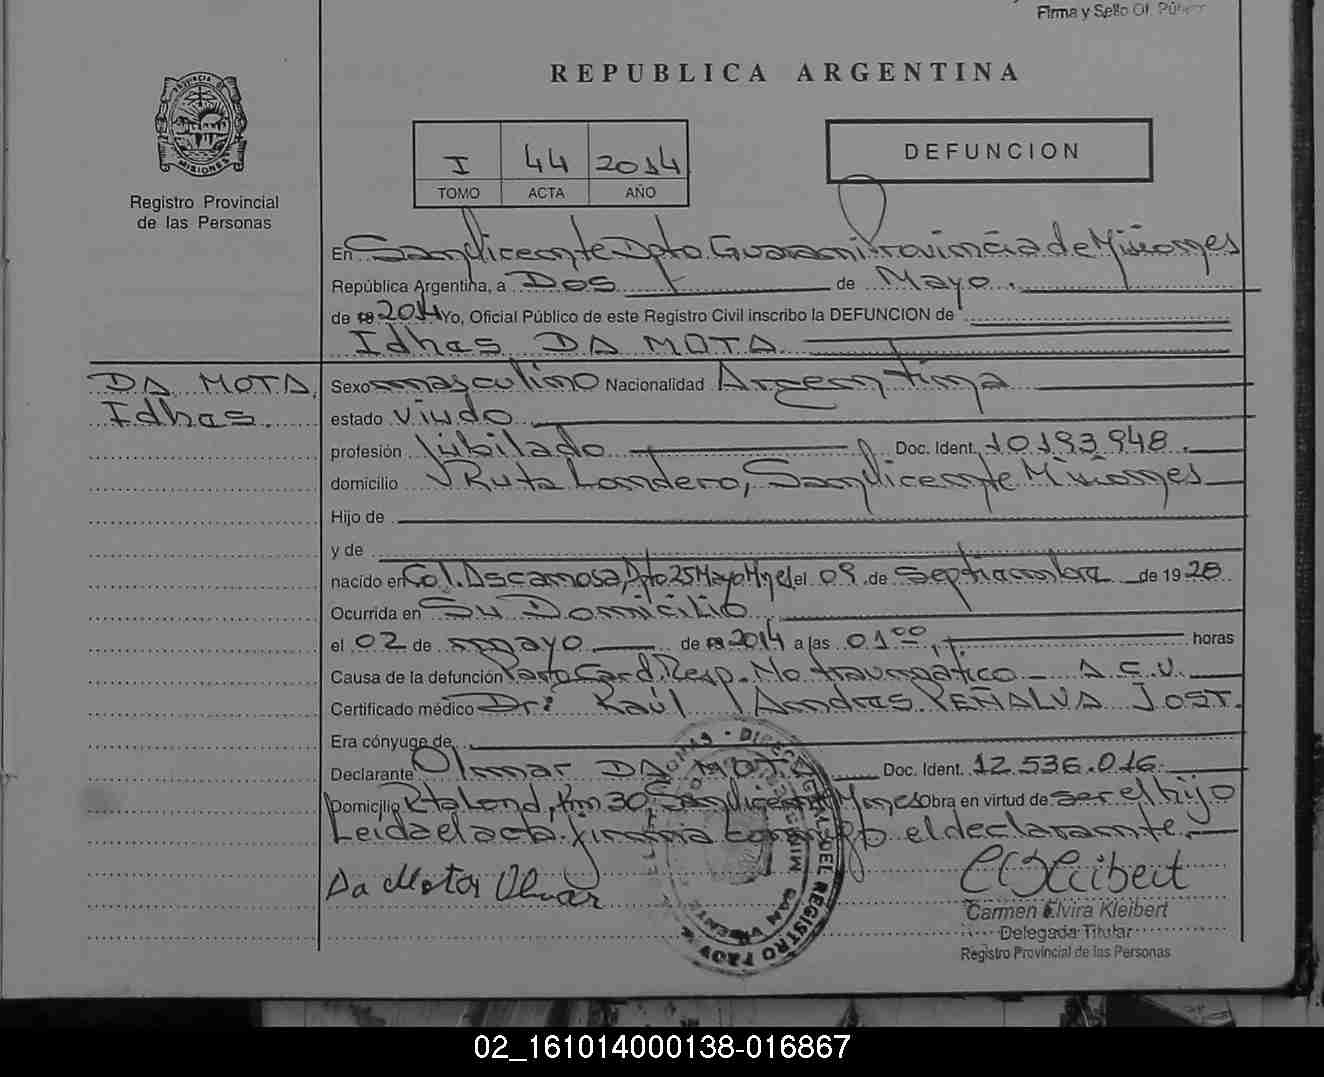 Firma y Sello Of. Púb
REPUBLICA ARGENTINA
PROVINCIA DE MISIONES
Registro Provincial
de las Personas
I 44 2014
TOMO ACTA AÑO
DEFUNCION
En San Vicente Dpto. Guarani Provincia de Misiones
República Argentina, a Dos de Mayo.
de 2014 Yo, Oficial Público de este Registro Civil inscribo la DEFUNCION de
Idhas DA MOTA
DA MOTA,
Idhas.
Sexo masculino Nacionalidad Argentina
estado viudo
profesión Jubilado Doc. Ident. 10.193.948.
domicilio Ruta Landero, San Vicente Misiones
Hijo de
y de
nacido en Col. Dpto 25 Mayo Mnes el 09 de septiembre de 1928
Ocurrida en Su Domicilio
el 02 de mayo de 2014 a las 01 00 horas
Causa de la defunción Paro Card. Resp. No traumatico A.C.V.
Certificado médico Dr: Raúl Andres PEÑALVA JOST.
Era cónyuge de
Declarante Olmar DA MOTA Doc. Ident. 12.536.016.
Domicilio Rta Land, Km 30, San Vicente Mnes Obra en virtud de ser el hijo
Leida el acta firma conmigo el declarante.
Da Mota Olmar
Carmen Elvira Kleibert
Delegada Titular
Registro Provincial de las Personas
02_161014000138-016867